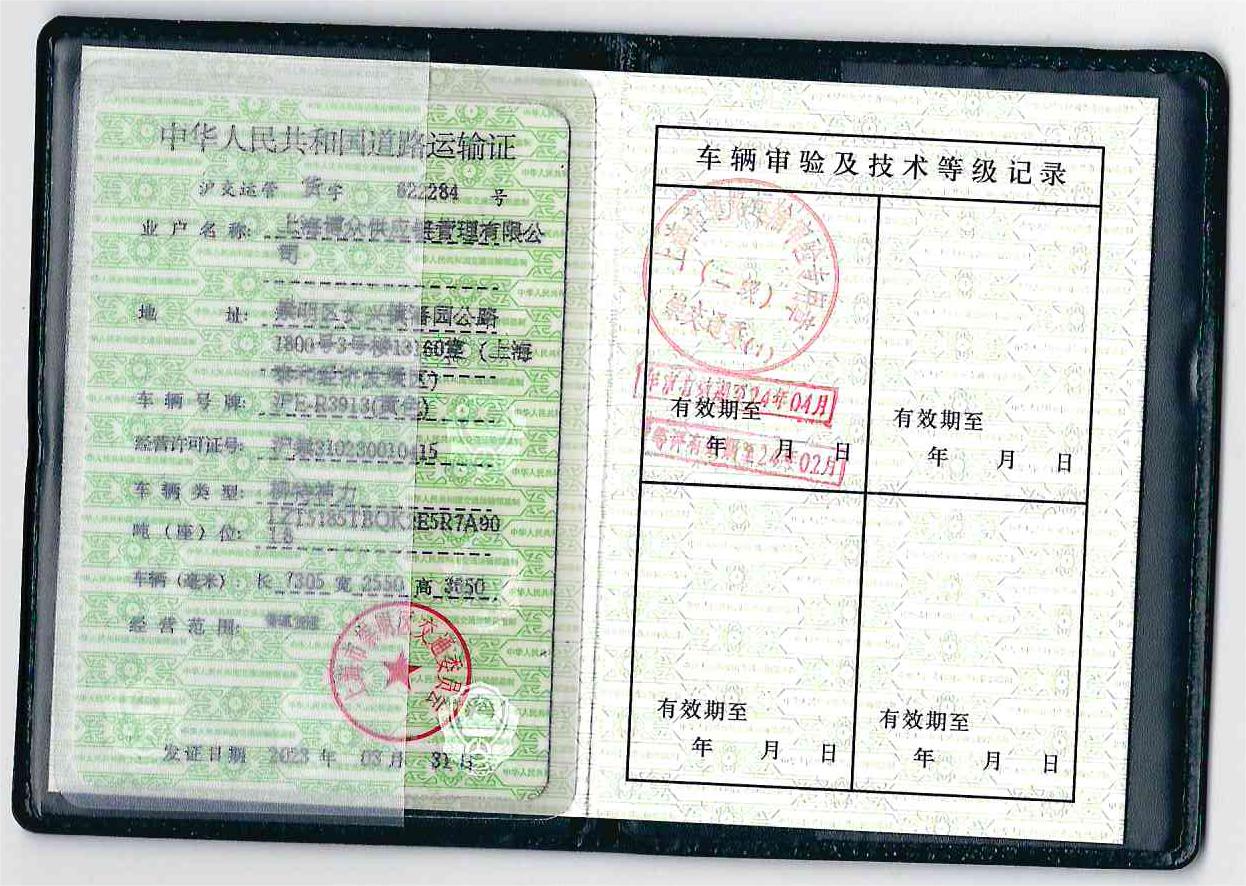 中华人民共和国道路运输证
沪交运管 货字 622284 号
业户名称: 上海 众供应链管理有限公
司
地 址: 崇明区长兴镇 园公路
1800号3号楼13160室(上海
泰和经济发展区)
车辆号牌: 沪E R3913(黄色)
经营许可证号: 310230010415
车辆类型:
吨(座)位: E5R7A90
18
车辆(毫米): 长 7305 宽 2550 高 3650
经营范围:
上海市崇明区交通委员会
发证日期 2023 年 03 月 31 日
车辆审验及技术等级记录
(二级)
崇交通委(1)
年审有效期至24年04月
有效期至
年 月 日
等评有效期至24年02月
有效期至
年 月 日
有效期至
年 月 日
有效期至
年 月 日